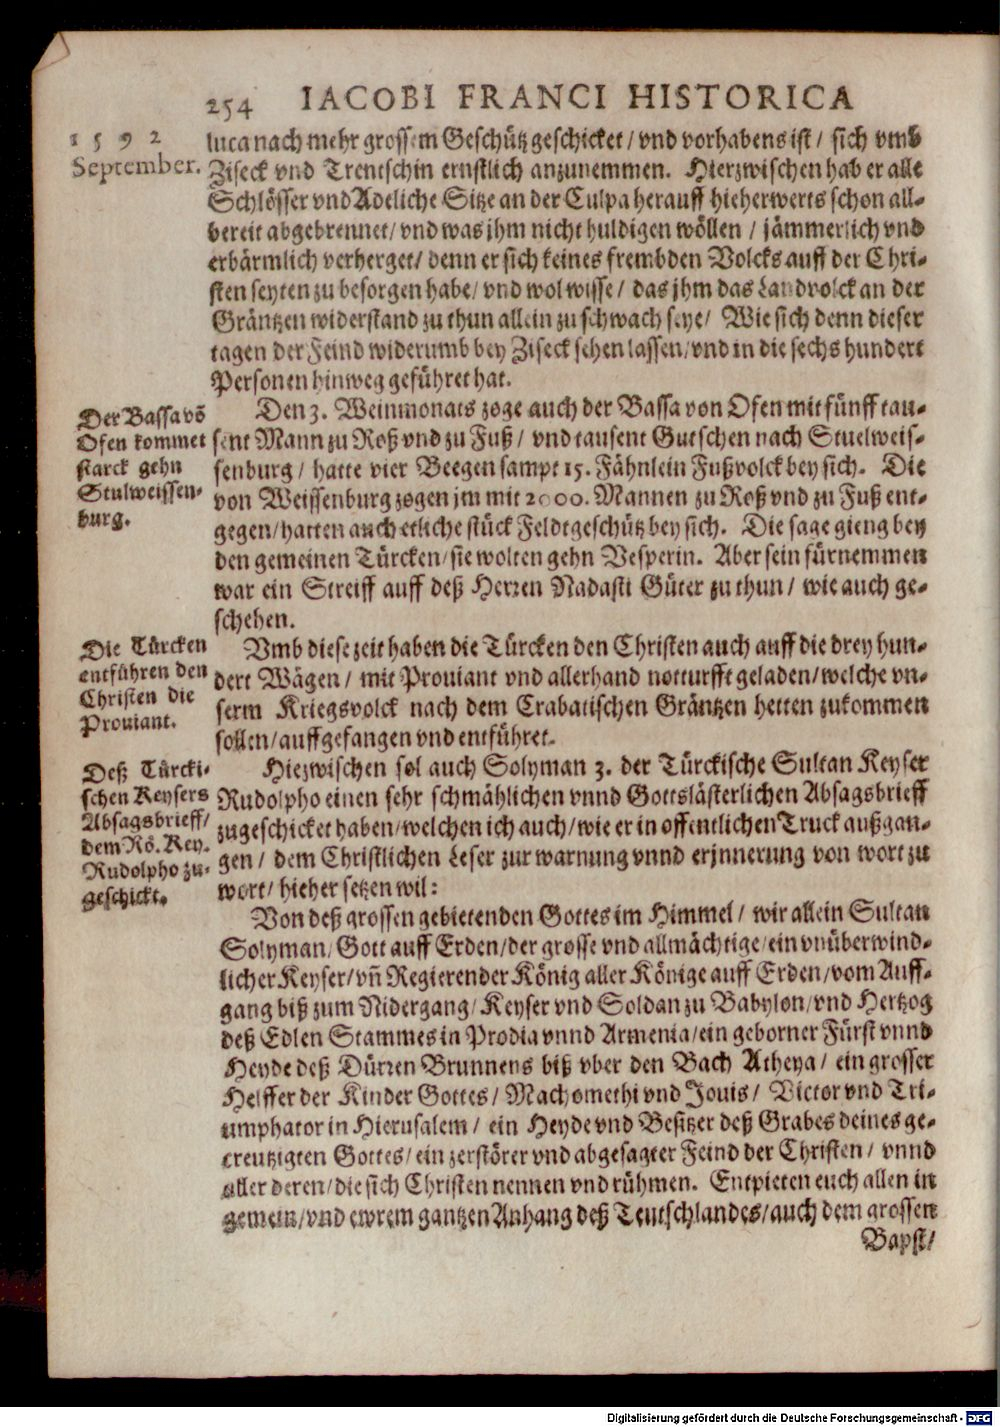 254 IACOBI FRANCI HISTORICA
1592
September.
luca nach mehr grossem Geschütz geschicket / vnd vorhabens ist / sich vmb
Ziseck vnd Trentschin ernstlich anzunemmen. Hierzwischen hab er alle
Schlösser vnd Adeliche Sitze an der Culpa herauff hieherwerts schon all-
bereit abgebrennet / vnd was jhm nicht huldigen wöllen / jämmerlich vnd
erbärmlich verherget / denn er sich keines frembden Volcks auff der Chri-
sten seyten zu besorgen habe / vnd wol wisse / das jhm das Landvolck an der
Gräntzen widerstand zu thun allein zu schwach seye / Wie sich denn dieser
tagen der Feind widerumb bey Ziseck sehen lassen / vnd in die sechs hundert
Personen hinweg geführet hat.
Der Bassa võ
Ofen kommet
starck gehn
Stulweissen-
burg.
Den 3. Weinmonats zoge auch der Bassa von Ofen mit fünff tau-
sent Mann zu Roß vnd zu Fuß / vnd tausent Gutschen nach Stuelweis-
senburg / hatte vier Beegen sampt 15. Fähnlein Fußvolck bey sich. Die
von Weissenburg zogen jm mit 2000. Mannen zu Roß vnd zu Fuß ent-
gegen / hatten auch etliche stück Feldtgeschütz bey sich. Die sage gieng bey
den gemeinen Türcken / sie wolten gehn Vesperin. Aber sein fürnemmen
war ein Streiff auff deß Herren Nadasti Güter zu thun / wie auch ge-
schehen.
Die Türcken
entführen den
Christen die
Prouiant.
Vmb diese zeit haben die Türcken den Christen auch auff die drey hun-
dert Wägen / mit Prouiant vnd allerhand notturfft geladen / welche vn-
serm Kriegsvolck nach dem Crabatischen Gräntzen hetten zukommen
sollen / auffgefangen vnd entführet.
Deß Türcki-
schen Keysers
Absagsbrieff /
dem Rö. Key.
Rudolpho zu-
geschickt.
Hiezwischen sol auch Solyman 3. der Türckische Sultan Keyser
Rudolpho einen sehr schmählichen vnnd Gottslästerlichen Absagsbrieff
zugeschicket haben / welchen ich auch / wie er in offentlichen Truck außgan-
gen / dem Christlichen Leser zur warnung vnnd erjnnerung von wort zu
wort / hieher setzen wil:
Von deß grossen gebietenden Gottes im Himmel / wir allein Sultan
Solyman / Gott auff Erden / der grosse vnd allmächtige / ein vnüberwind-
licher Keyser / vñ Regierender König aller Könige auff Erden / vom Auff-
gang biß zum Nidergang / Keyser vnd Soldan zu Babylon / vnd Hertzog
deß Edlen Stammes in Prodia vnnd Armenia / ein geborner Fürst vnnd
Heyde deß Dürren Brunnens biß vber den Bach Atheya / ein grosser
Helffer der Kinder Gottes / Machomethi vnd Jouis / Victor vnd Tri-
umphator in Hierusalem / ein Heyde vnd Besitzer deß Grabes deines ge-
creutzigten Gottes / ein zerstörer vnd abgesagter Feind der Christen / vnnd
aller deren / die sich Christen nennen vnd rühmen. Entpieten euch allen in
gemein / vnd ewrem gantzen Anhang deß Teutschlandes / auch dem grossen
Bapst /
Digitalisierung gefördert durch die Deutsche Forschungsgemeinschaft - DFG